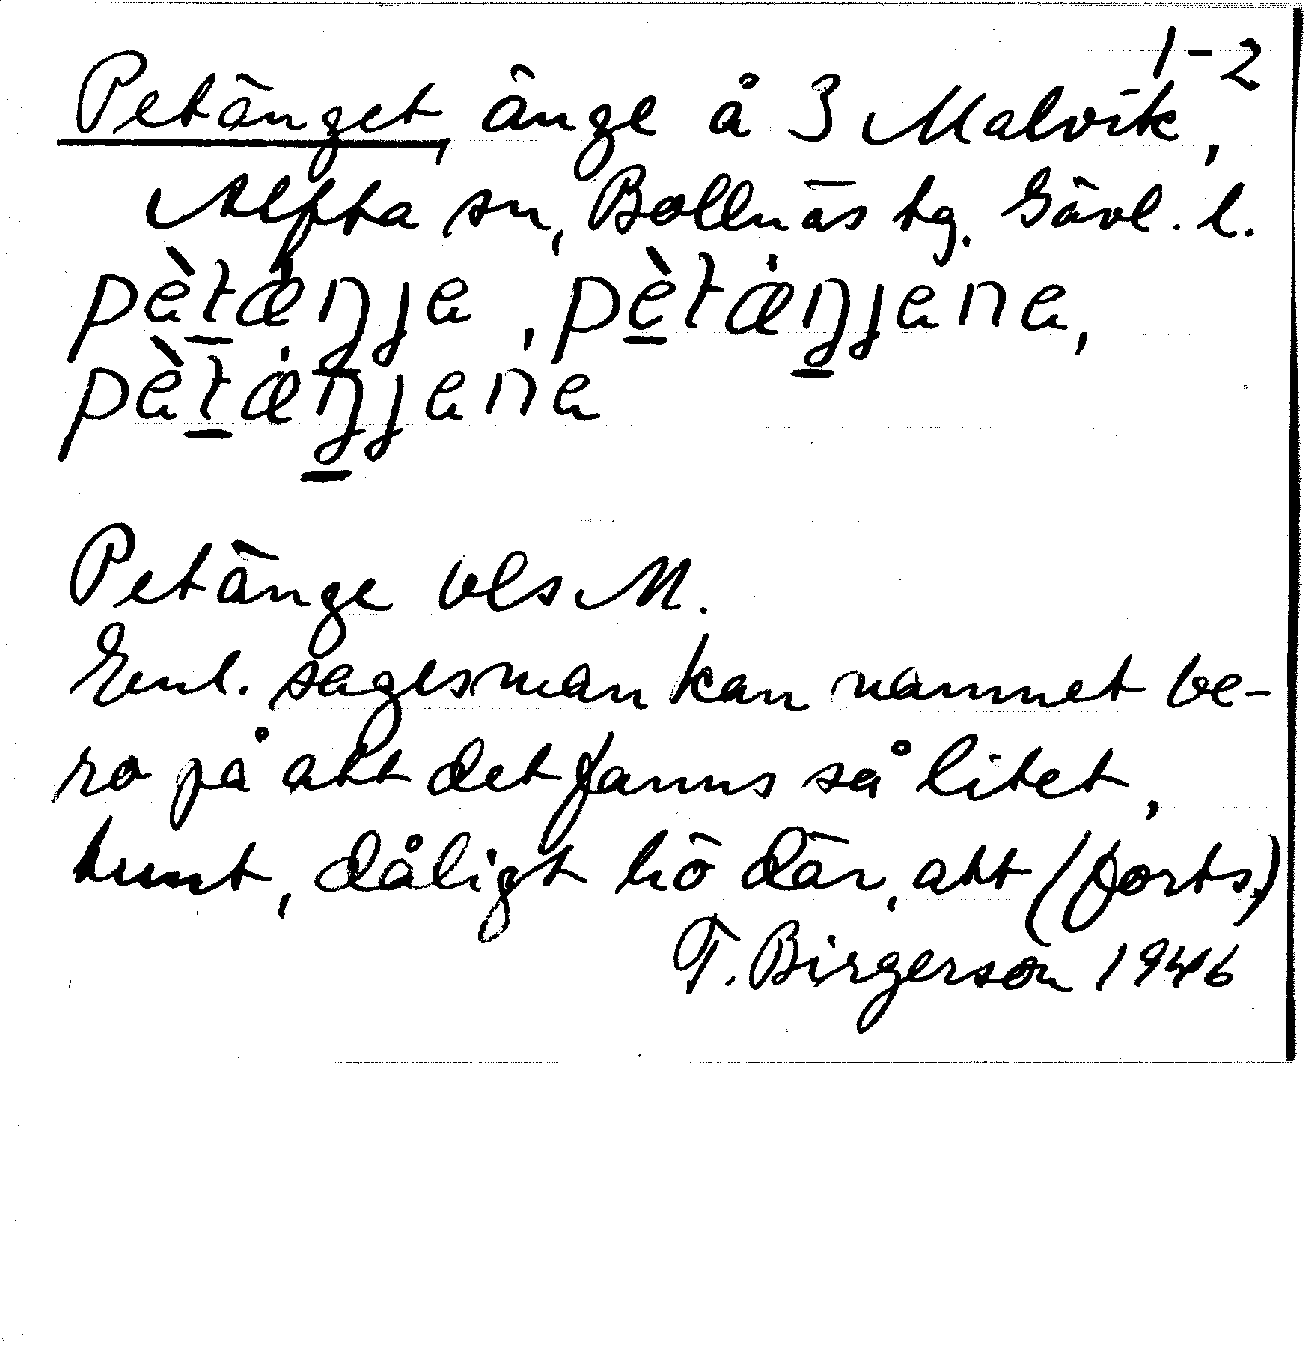 1-2
Petänget, änge å 3 Malvik,
Alfta sn, Bollnäs tg. Gävl. l.
pètæ̀ŋja, pètæ̀ŋjana,
pètæ̀ŋjana
Petänge vls M.
Enl. sagesman kan namnet be-
ro på att det fanns så litet,
tunt, dåligt hö där, att (forts.)
T. Birgerson 1946